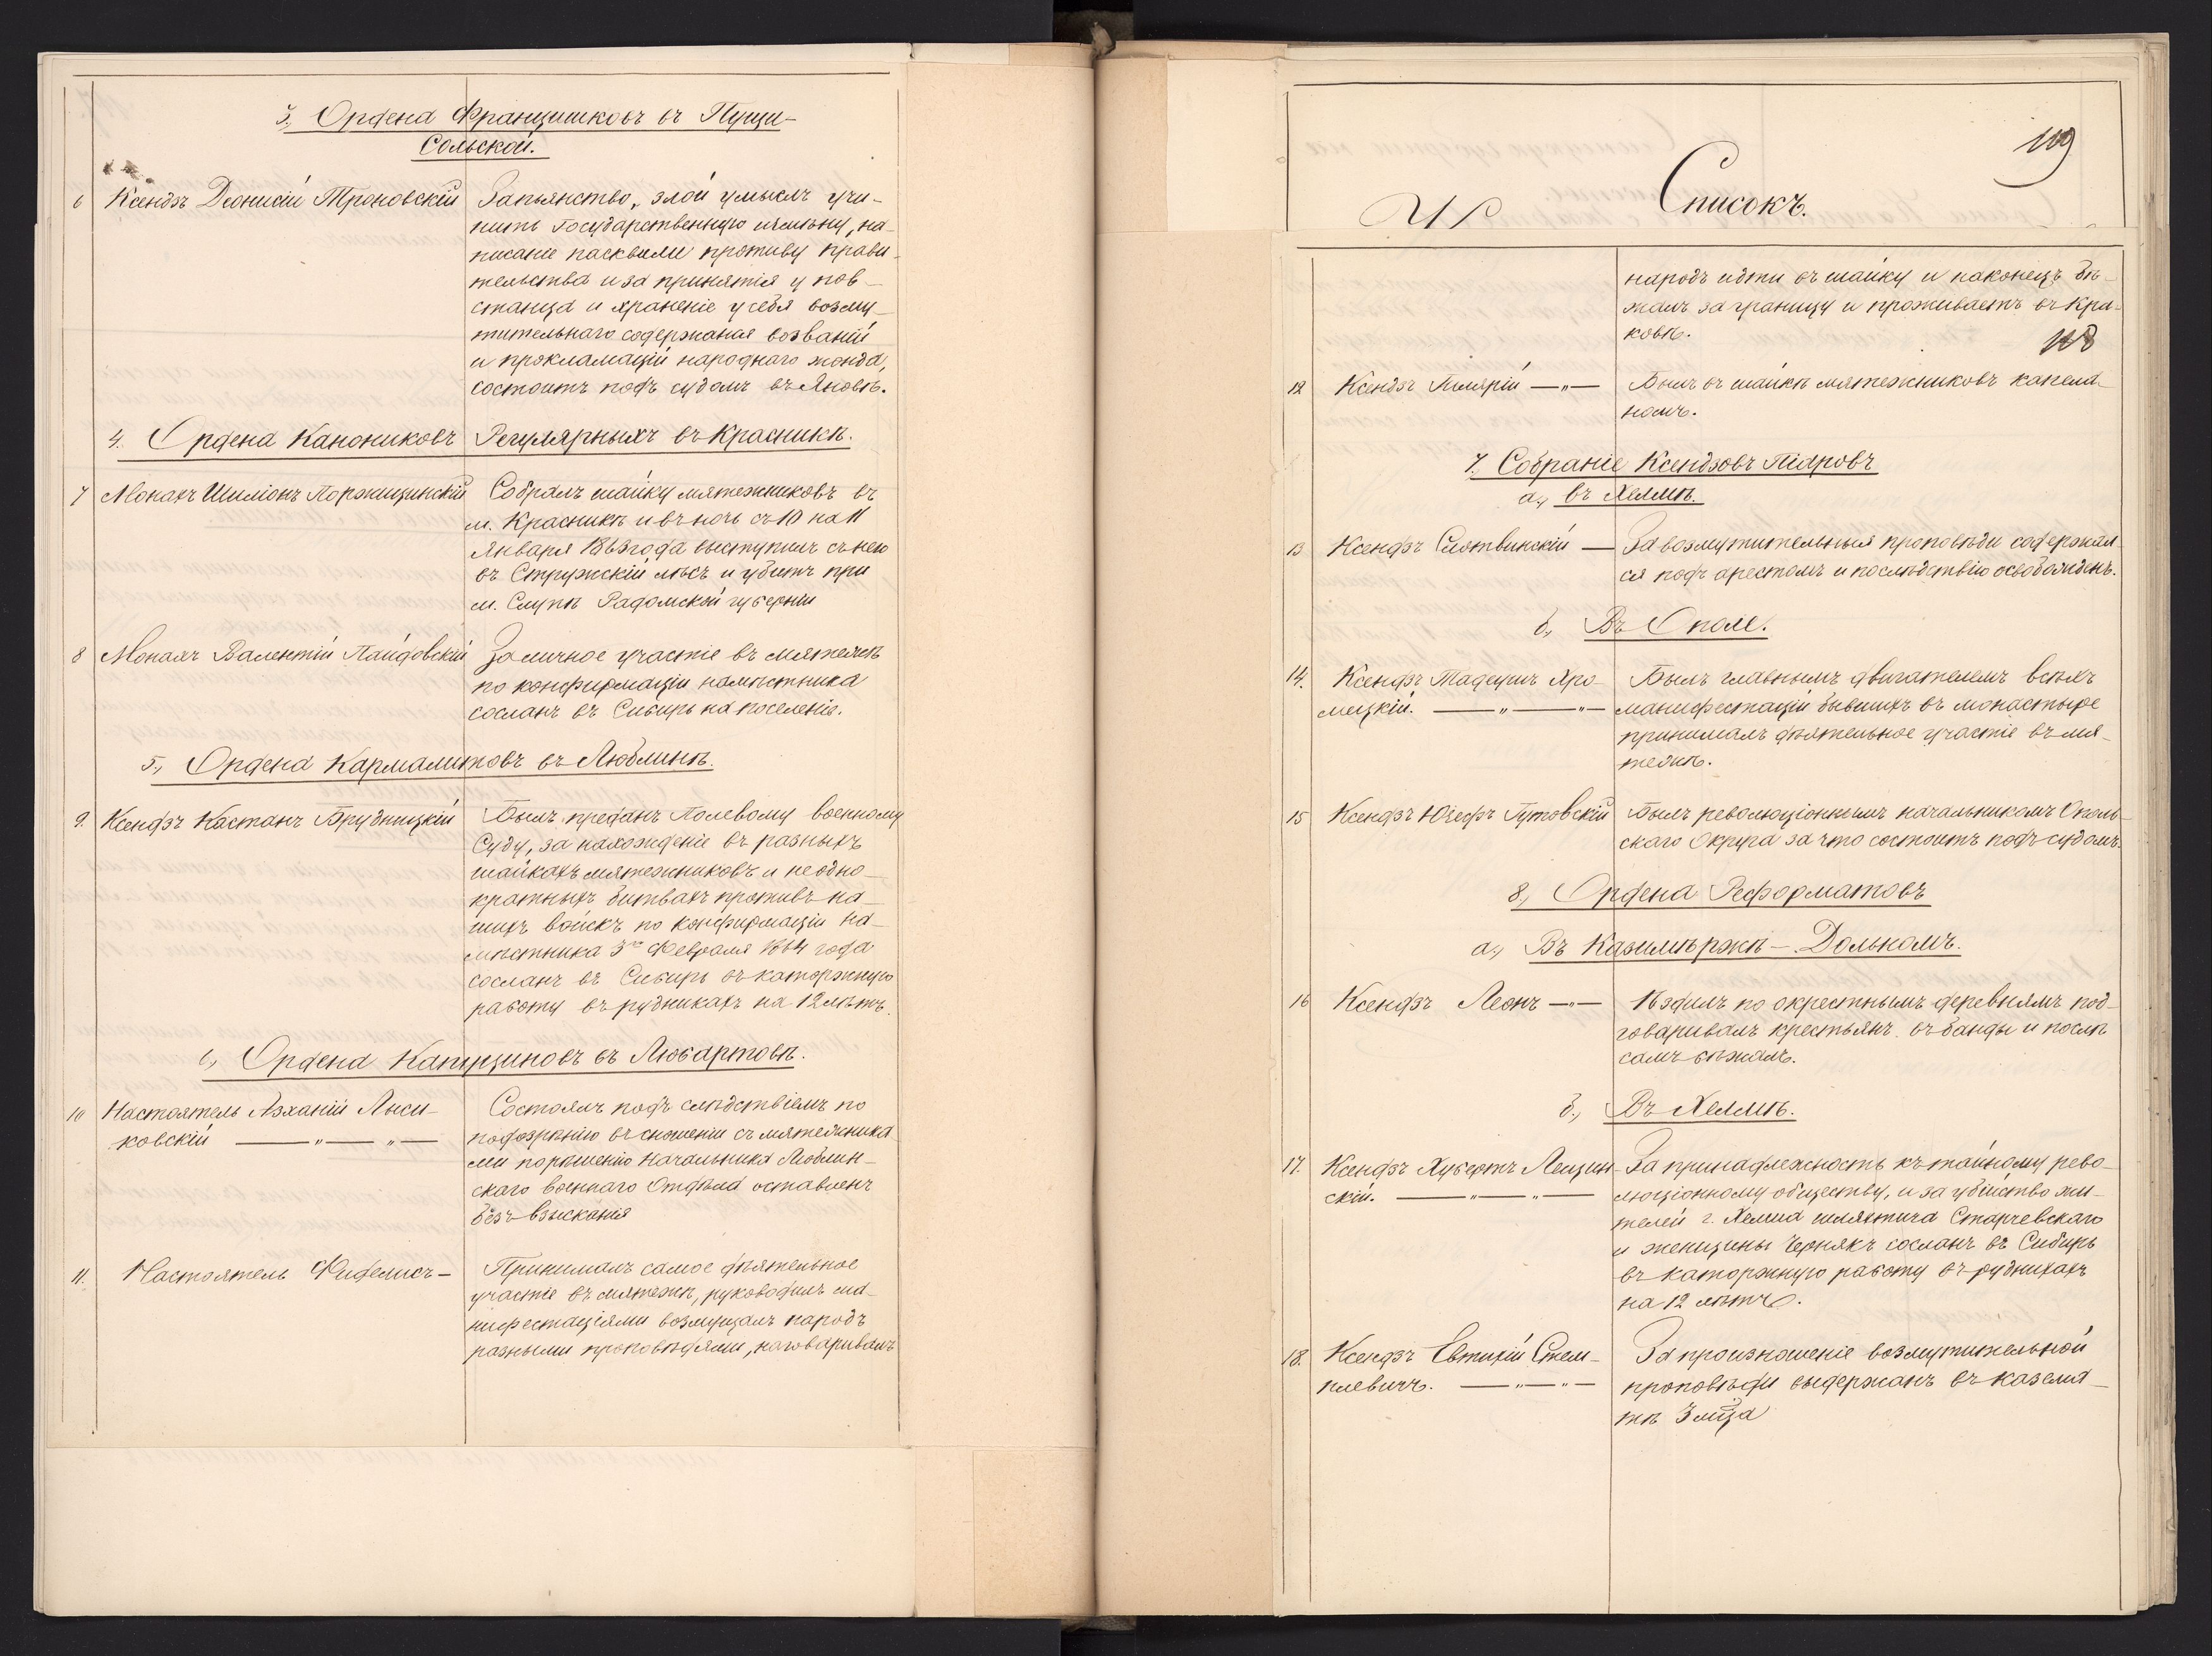 3., Ордена Францишковъ въ Пущи-
Сольской.
6 Ксендзъ Діонисій Троновскій Запьянство, злой умыслъ учи-
нить Государственную измѣну, на-
писаніе пасквили противу прави-
тельства и за принятія у пов-
станца и храненіе у себя возму-
тительнаго содержанія возваній
и прокламацій народнаго жонда,
состоитъ подъ судомъ въ Яновѣ.
4. Ордена Канониковъ Регулярныхъ въ Красникѣ.
7 Монахъ Шиліонъ Поржицинскій Собралъ шайку мятежниковъ въ
м. Красникѣ и въ ночь съ 10 на 11
Января 1863 года выступилъ съ нею
въ Стружскій лѣсъ и убитъ при
м. Слупѣ Радомской губерніи
8 Монахъ Валентій Пайдовскій За личное участіе въ мятежѣ
по конфирмаціи намѣстника
сосланъ въ Сибирь на поселеніе.
5., Ордена Кармалитовъ въ Люблинѣ.
9. Ксендзъ Каетанъ Брудницкій Былъ преданъ Полевому военному
Суду, за нахожденіе въ разныхъ
шайкахъ мятежниковъ и неодно-
кратныхъ битвахъ противъ на-
шихъ войскъ по конфирмаціи на-
мѣстника 3го Февраля 1864 года
сосланъ въ Сибирь въ каторжную
работу въ рудникахъ на 12 лѣтъ.
6., Ордена Капуциновъ въ Любартовѣ.
10 Настоятель Азханій Лыси- Состоялъ подъ слѣдствіемъ по
ковскій —„—„— подозрѣнію въ сношеніи съ мятежника-
ми по рѣшенію Начальника Люблин-
скаго военнаго Отдѣла оставленъ
безъ взысканія
11. Настоятель Фиделисъ — Принималъ самое дѣятельное
участіе въ мятежѣ, руководилъ ма-
нифестаціями возмущалъ народъ
разными проповѣдями, наговаривалъ
119
Списокъ.
народъ идти въ шайку и наконецъ бѣ-
жалъ за границу и проживаетъ въ Кра-
ковѣ.
118
12 Ксендзъ Гиляріи —„— Былъ въ шайкѣ мятежниковъ капела-
номъ.
7. Собраніе Ксендзовъ Піаровъ
а., въ Хелмѣ.
13 Ксендзъ Слотвинскій — За возмутительныя проповѣди содержал-
ся подъ арестомъ и послѣдствію освобожденъ.
б., Въ Ополе.
14. Ксендзъ Тадеушъ Хро- Былъ главнымъ двигателемъ всѣхъ
мецкій. —„—„— манифестацій бывшихъ въ монастырѣ
принималъ дѣятельное участіе въ мя-
тежѣ.
15 Ксендзъ Юзефъ Гутовскій Былъ революціоннымъ начальникомъ Ополь-
скаго Округа за что состоитъ подъ судомъ.
8., Ордена Реформатовъ
а., Въ Казимѣржѣ — Дольномъ.
16 Ксендзъ Леонъ —„— Ѣздилъ по окрестнымъ деревнямъ под-
говаривалъ крестьянъ въ банды и послѣ
самъ бѣжалъ.
б., Въ Хелмѣ.
17. Ксендзъ Хубертъ Лещин- За принадлежность къ тайному рево-
скій. —„—„— люціонному обществу, и за убійство жи-
телей г. Хелма шляхтича Старчевскаго
и женщины Чернякъ сосланъ въ Сибирь
въ каторжную работу въ рудникахъ
на 12 лѣтъ.
18. Ксендзъ Евтихій Стем- За произношеніе возмутительной
плевичъ. —„—„— проповѣди выдержанъ въ казема-
тѣ 3 мѣца